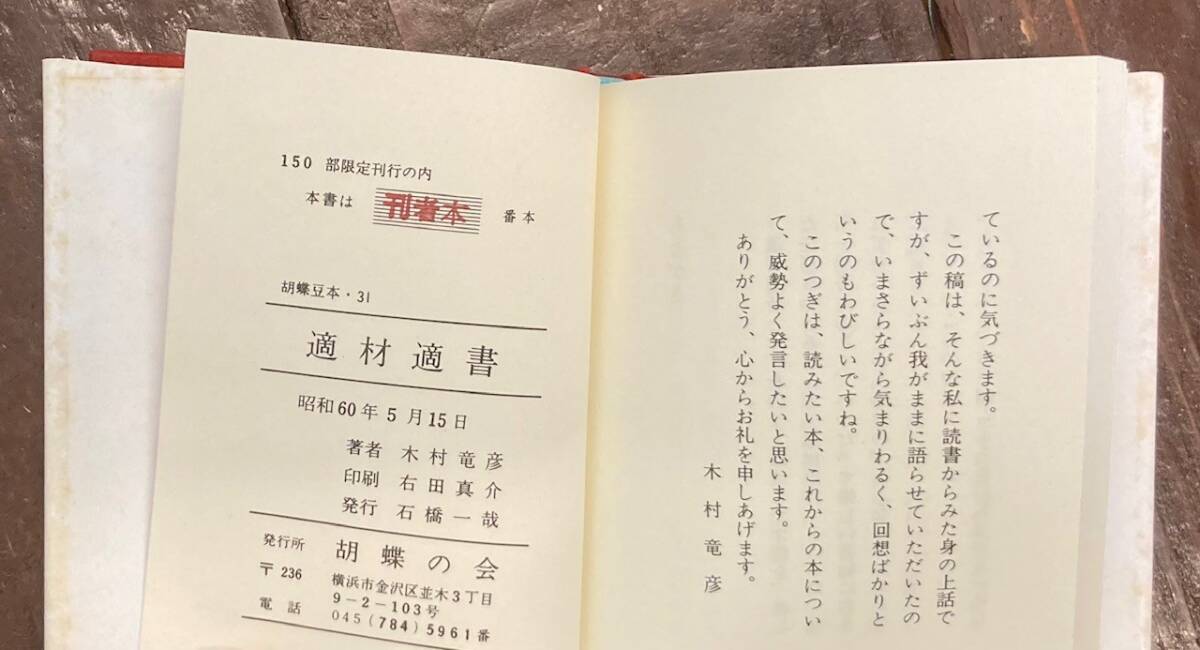 ているのに気づきます。
この稿は、そんな私に読書からみた身の上話で
すが、ずいぶん我がままに語らせていただいたの
で、いまさらながら気まりわるく、回想ばかりと
いうのもわびしいですね。
このつぎは、読みたい本、これからの本につい
て、威勢よく発言したいと思います。
ありがとう、心からお礼を申しあげます。
木村竜彦
150 部限定刊行の内
本書は 刊者本 番本
胡蝶豆本・31
適材適書
昭和60年5月15日
著者 木村竜彦
印刷 右田真介
発行 石橋一哉
発行所 胡蝶の会
〒236 横浜市金沢区並木3丁目
9-2-103号
電話 045(784)5961番